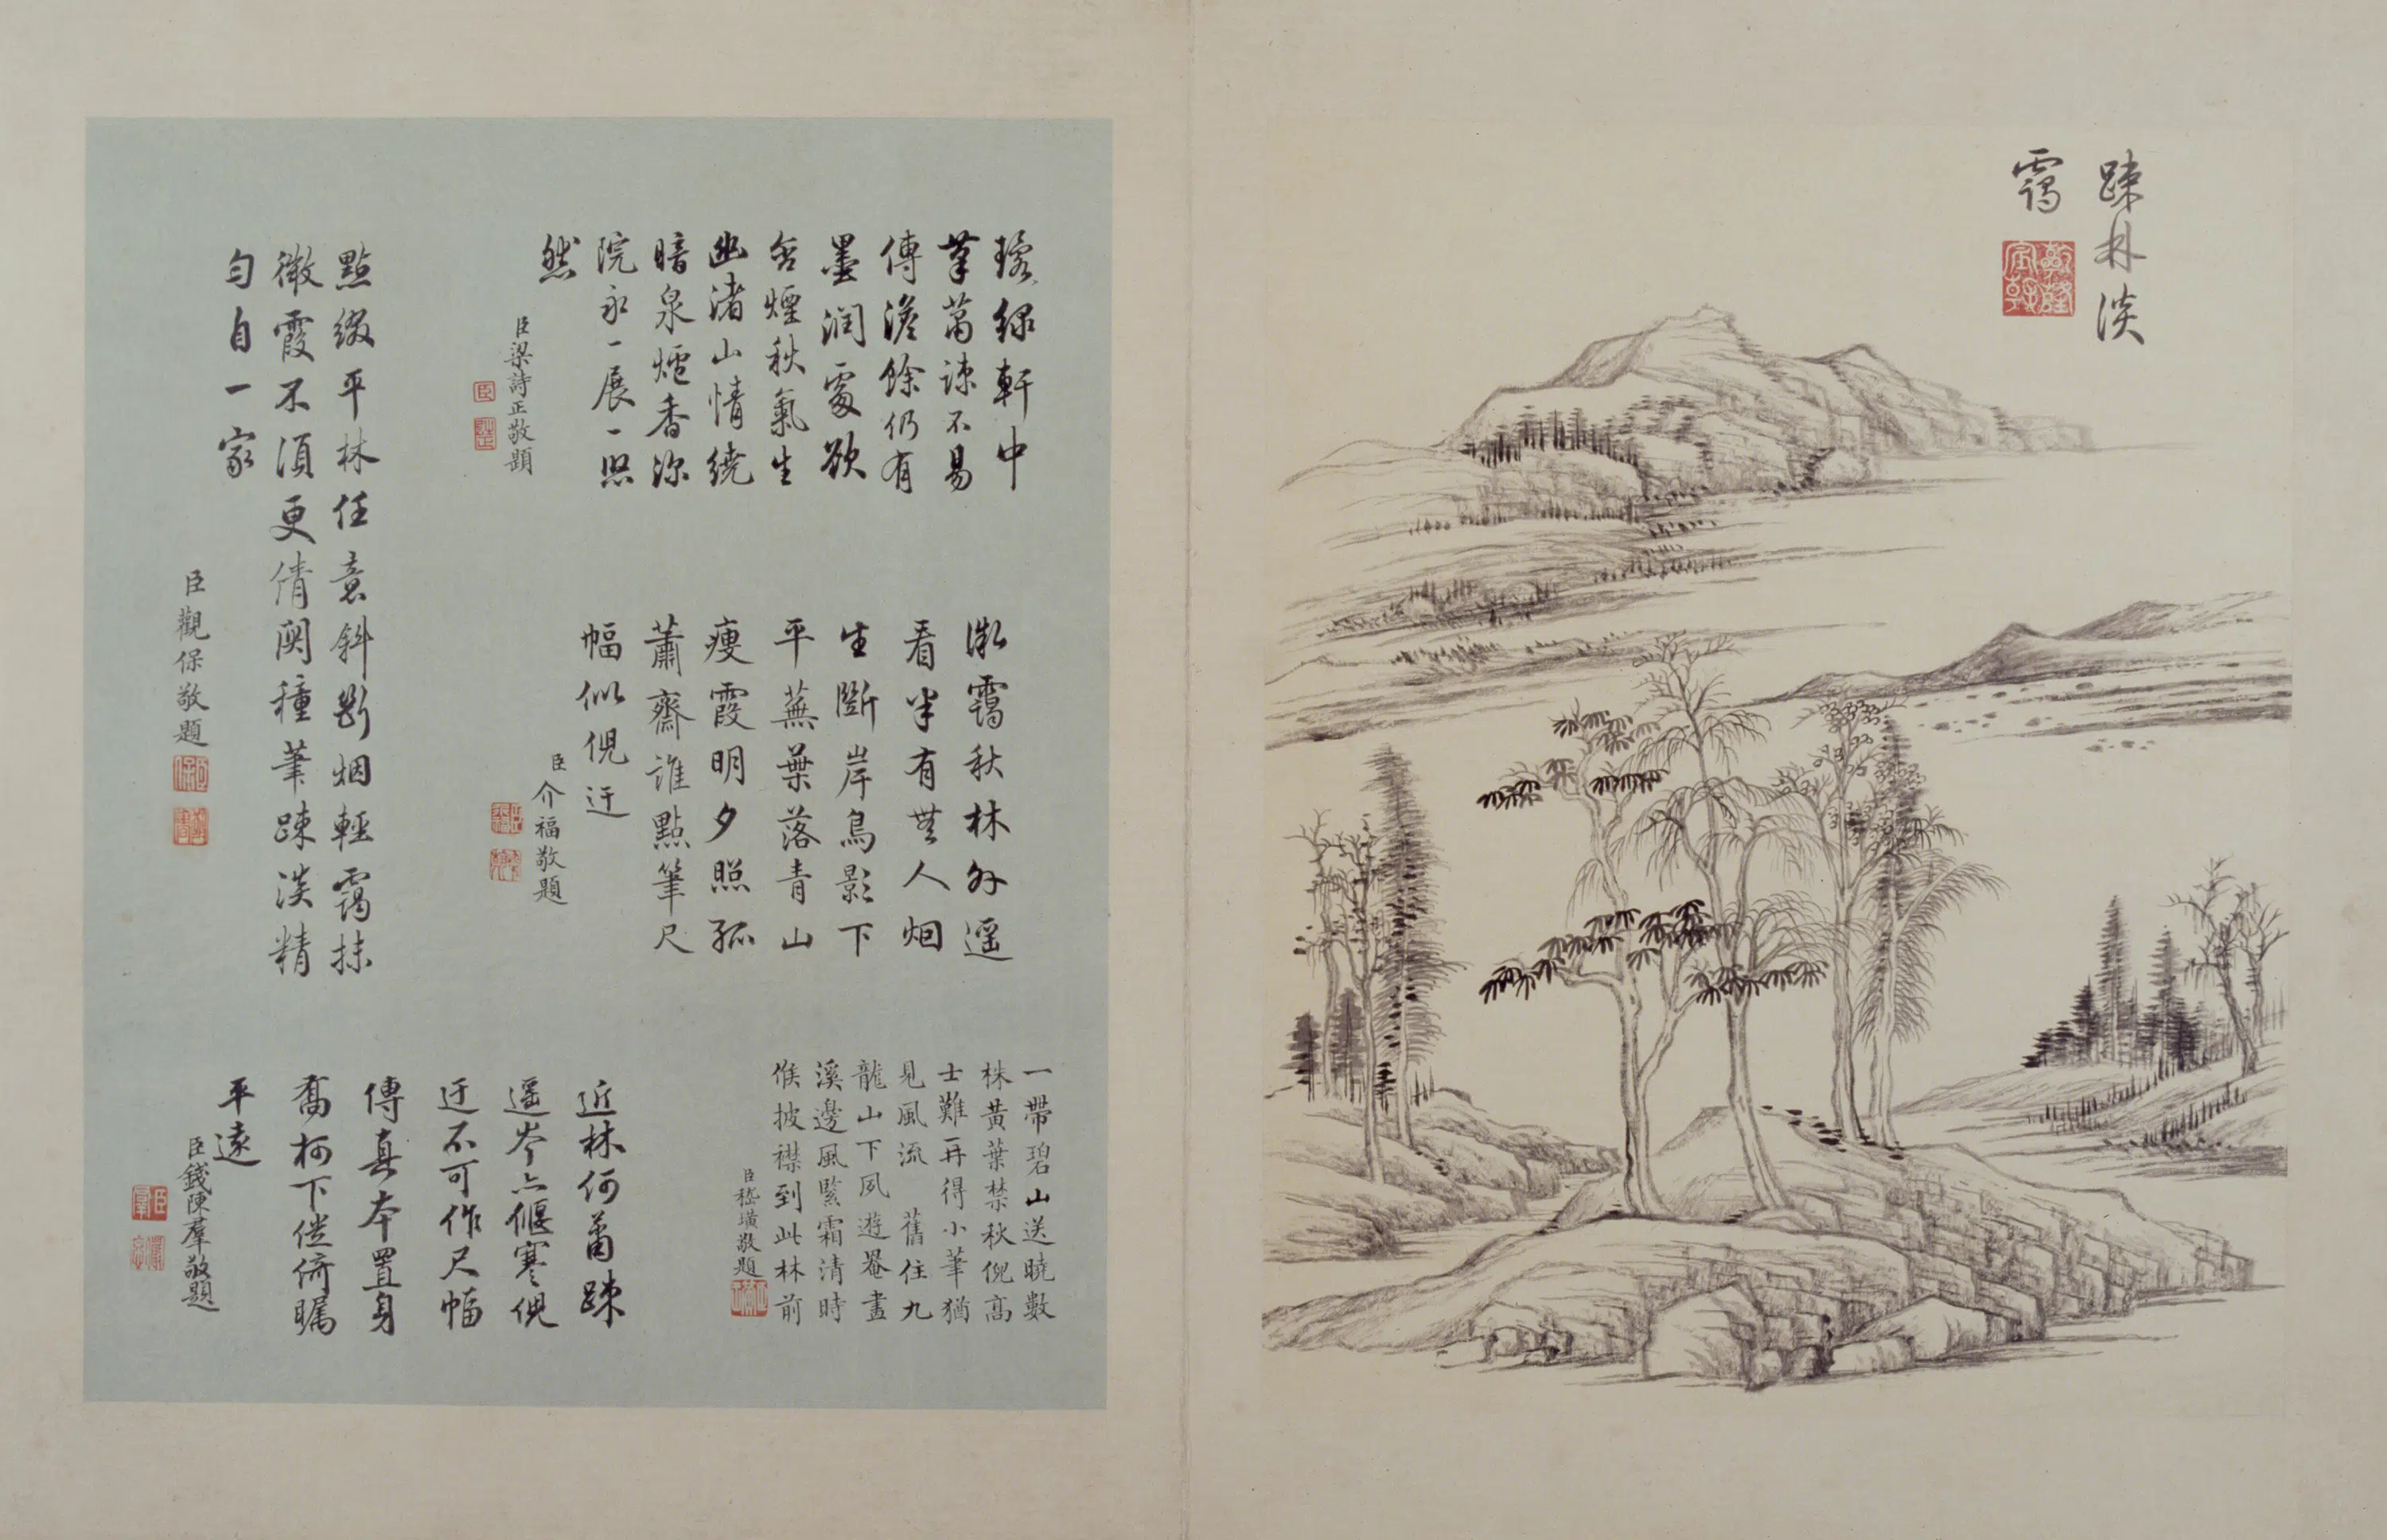 踈林淡
靄
乾隆宸翰
緑軒中
筆蕭踈不易
傳澹餘仍有
墨潤處欲
含煙秋氣生
幽渚山情繞
暗泉爐香深
院永一展一
然
臣梁詩正敬題
微靄秋林外遥
看半有無人烟
生斷岸鳥影下
平蕪葉落青山
瘦霞明夕照孤
蕭齋誰點筆尺
幅似倪迂
臣介福敬題
一帶碧山送曉數
株黄葉禁秋倪高
士難再得小筆猶
見風流 舊住九
龍山下夙遊罨畫
溪邊風緊霜清時
候披襟到此林前
臣嵇璜敬題
點綴平林任意斜斷烟輕靄抹
微霞不須更倩関種筆踈淡精
勻自一家
臣觀保敬題
近林何蕭踈
遥岑亦偃蹇倪
迂不可作尺幅
傳真本置身
喬柯下徙倚矚
平遠
臣錢陳羣敬題